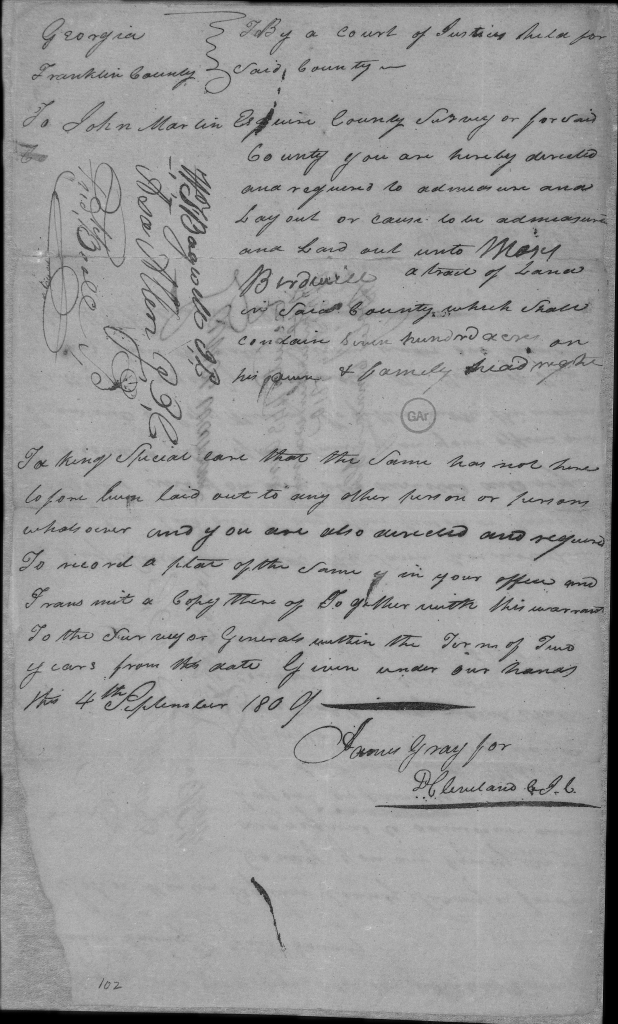 Georgia
Franklin County
By a Court of Justices held for
Said County
To John Martin Esquire County Survey or for Said
County you are hereby directed
and required to admeasure and
Lay out or cause to be admeasure
and Laid out unto Moses
Birdwell a tract of Land
in Said County which Shall
contain Seven hundred acres on
his own & family head right
Taking Special care that the Same has not here
tofore been laid out to any other person or persons
whatsoever and you are also directed and required
To record a plat of the Same in your office and
Transmit a Copy there of Together with this warrant
To the Surveyor Generals within the Term of Two
years from the date Given under our hands
this 4th September 1809
James Gray for
Cleveland
Asa Allen
GAr
102